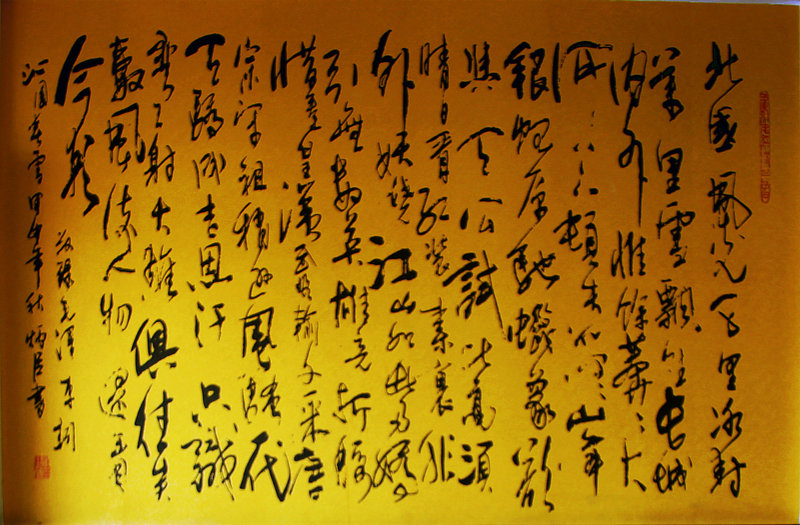 北國風光千里冰封
萬里雪飄望長城
內外惟餘莽莽大
河上下頓失滔滔山舞
銀蛇原馳蠟象欲
與天公試比高須
晴日看紅裝素裹分
外妖嬈江山如此多嬌
引無數英雄競折腰
惜秦皇漢武略輸文采唐
宗宋祖稍遜風騷一代
天驕成吉思汗只識
彎弓射大雕俱往矣
數風流人物還看
今朝
敬錄毛澤東詞
沁園春雪甲午年秋書